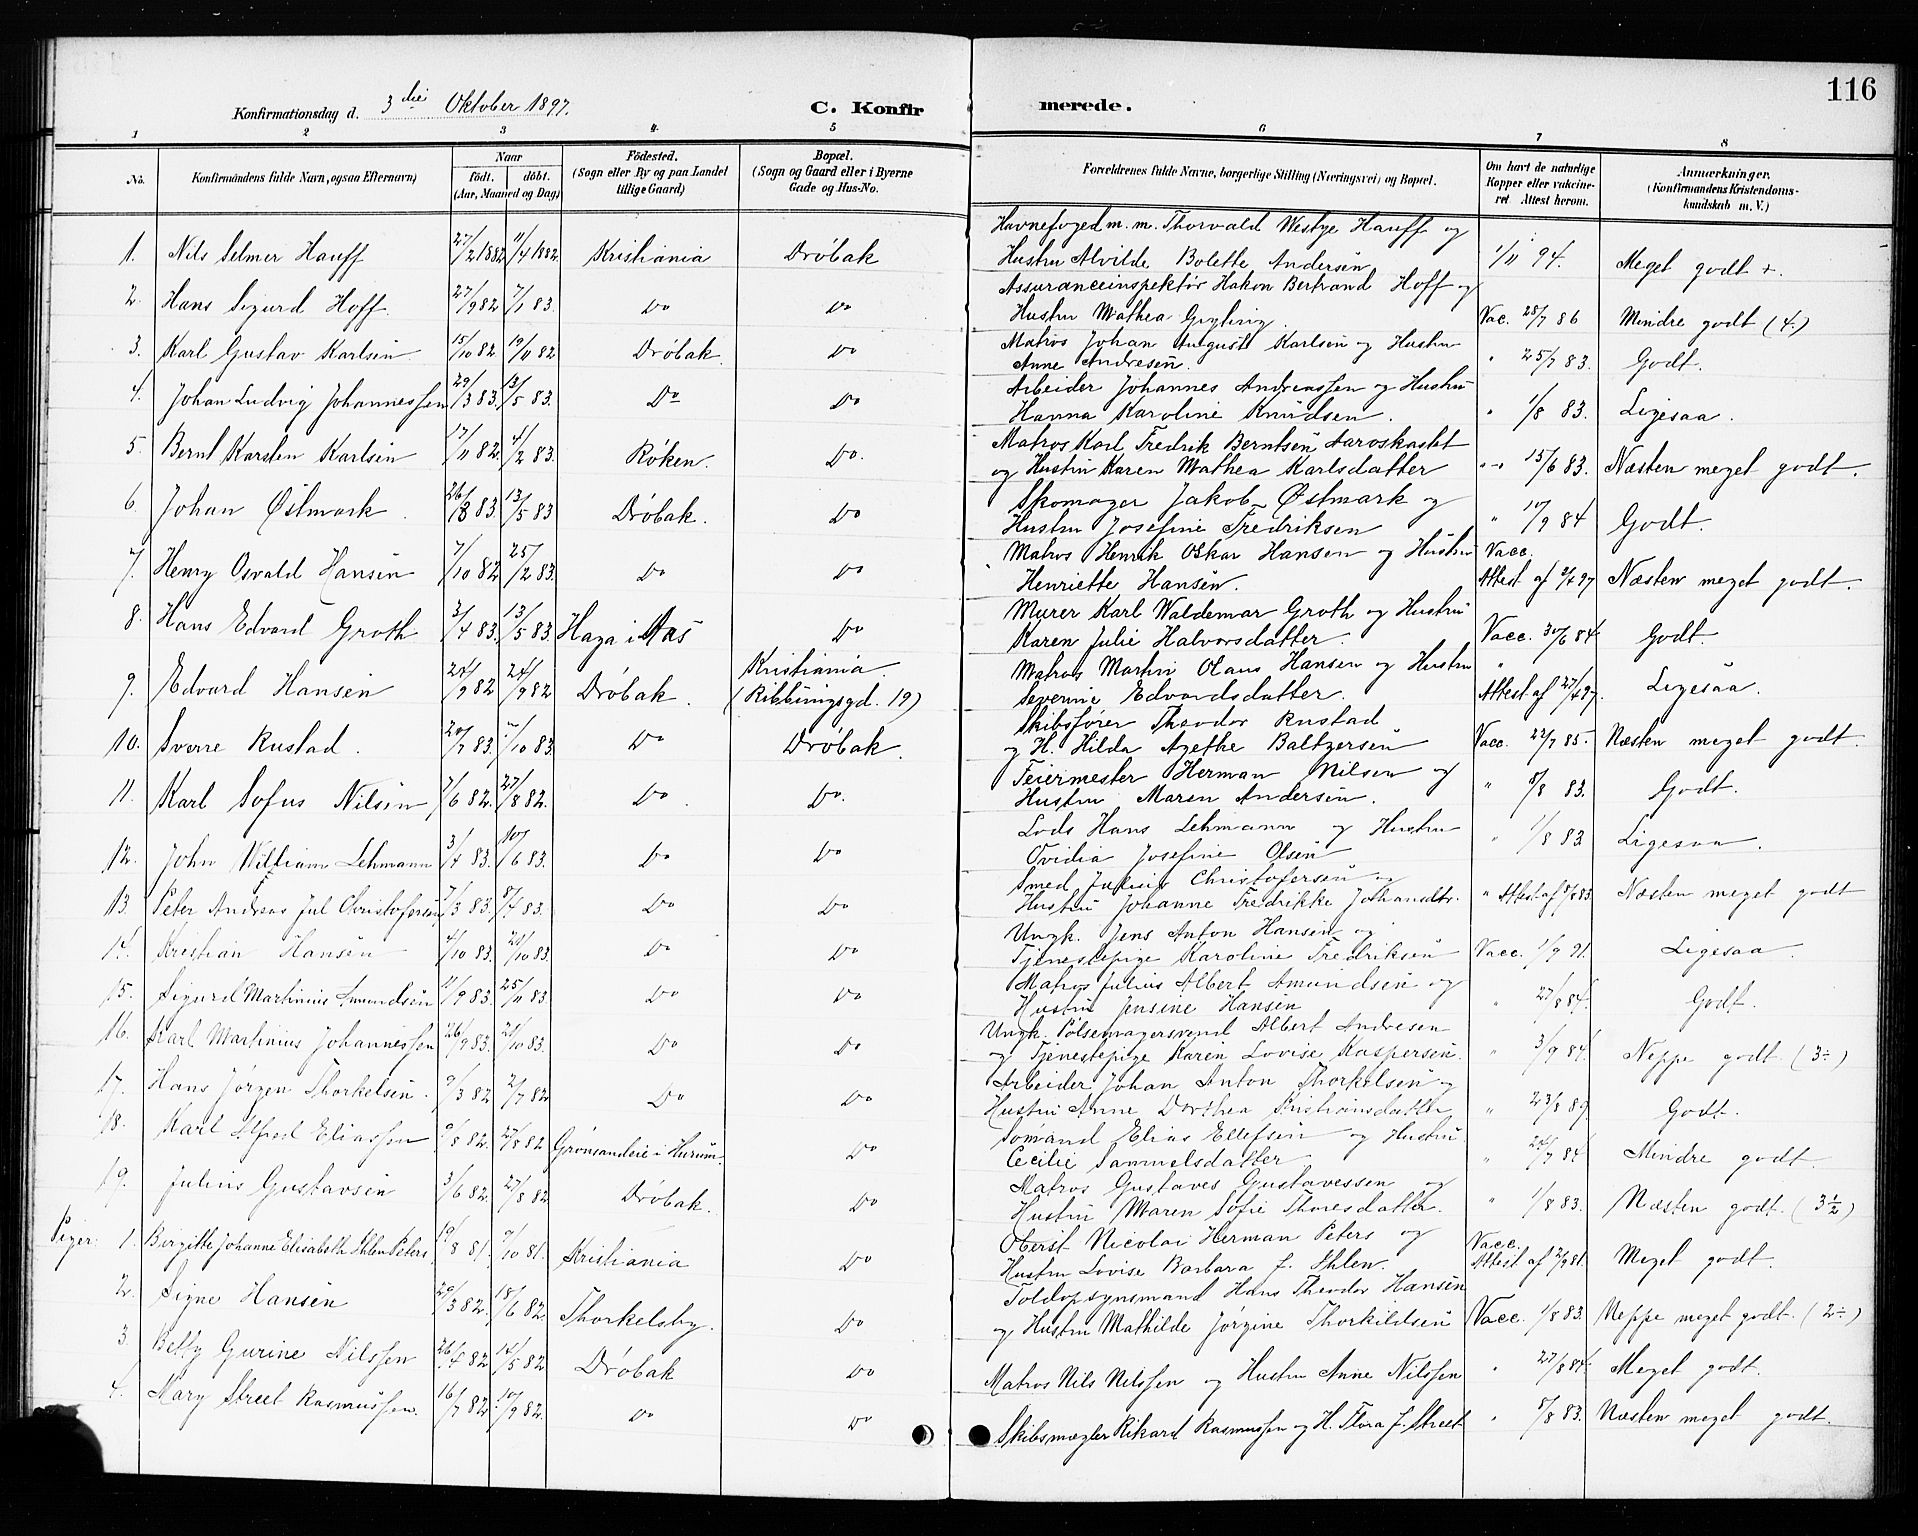 116
Konfirmationsdag d. 3die Oktober 1897.
C. Konfirmerede.
1 2 3 4. 5 6 7 8
No. Konfirmandens fulde Navn, ogsaa Efternavn) Naar födt. döbt. (Aar, Maaned og Dag) Födested. (Sogn eller By og paa Landet tillige Gaard) Bopæl. (Sogn og Gaard eller i Byerne Gade og Hus-No. Forældrenes fulde Navne, borgerlige Stilling (Næringsvei) og Bopæl. Om havt de naturlige Kopper eller vakcineret Attest herom. Anmærkninger. (Konfirmandens Kristendomskundskab m. V.)
1. Nils Selmer Hauff 27/2 1882 11/4 1882. Kristiania Drøbak Havnefoged m. m. Thorvald Westye Hauff og
Hustru Alvilde Bolette Andersen 1/11 94. Meget godt +.
2. Hans Sigurd Hoff 27/9 82 7/1 83. Do Do Assuranceinspektør Hakon Bertrand Hoff og
Hustru Mathea Vac. 28/7 86 Mindre godt (4.)
3. Karl Gustav Karlsen 15/10 82 19/11 82 Drøbak Do Matros Johan August Karlsen og Hustru
Anne Andresen. " 25/7 83. Godt.
4. Johan Ludvig Johannessen 29/3 83. 13/5 83. Do Do Arbeider Johannes Andreassen og Hustru
Hanna Karoline Knudsen. " 1/8 83. Ligesaa.
5. Bernt Karsten Karlsen 17/11 82. 4/2 83. Røken. Do. Matros Karl Fredrik Berntsen Aaroskastet
og Hustru Karen Mathea Karlsdatter " 15/6 83. Næsten meget godt.
6. Johan Østmark 26/3 83. 13/5 83 Drøbak. Do Skomager Jakob Østmark og
Hustru Josefine Fredriksen " 10/9 84 Godt.
7. Henry Osvald Hansen 7/10 82 25/2 83. Do Do Matros Henrik Oskar Hansen og Hustru
Henriette Hansen. Vacc. Attest af 2/4 97 Næsten meget godt.
8. Hans Edvard Groth 3/4 83. 13/5 83. Haga i Aas Do Murer Karl Waldemar Groth og Hustru
Karen Julie Halvorsdatter. Vacc. 30/6 84. Godt.
9. Edvard Hansen 24/9 82 Drøbak. Kristiania (Ribbungsgd. 19) Matros Martin Olaus Hansen og Hustru
Severine Edvardsdatter. " Attest af 27/4 97. Ligesaa.
10. Sverre Rustad. 20/7 83. 7/10 83. Do Drøbak. Skibsfører Theodor Rustad
og H. Hilda Agethe Baltzersen Vacc. 22/7 85. Næsten meget godt.
11. Karl Sofus Nilsen 7/6 82. 27/8 82. Do Do. Feiermester Herman Nilsen og
Hustru Maren Andersen. " 8/8 83. Godt.
12. John William Lehmann 3/4 83. 10/6 83. Do Do Lods Hans Lehmann og Hustru
Ovidia Josefine Olsen " 1/8 83 Ligesaa.
13. Peter Andreas Jul Christofersen 7/3 83. 8/4 83. Do Do Smed Julius Christofersen og
Hustru Johanne Fredrikke Johandtr. " Attest af 8/8 83. Næsten meget godt
14. Kristian Hansen 4/10 83. 21/10 83. Do Do Ungk. Jens Anton Hansen og
Tjenestepige Karoline Fredriksen Vacc. 1/9 91. Ligesaa.
15. Sigurd Martinius Amundsen 11/9 83. 25/11 83. Do Do Matros Julius Albert Amundsen og
Hustru Jensine Hansen " 27/8 84. Godt.
16. Karl Martinius Johannessen 26/9 83. 21/10 83. Do Do Ungk. Pølsemagersvend Albert Andresen
og Tjenestepige Karen Lovise Kaspersen. " 3/9 84. Neppe godt (3÷)
17. Hans Jørgen Thorkelsen. 9/3 82 2/7 82 Do Do Arbeider Johan Anton Thorkelsen og
Hustru Anne Dorthea Kristiansdatter " 23/8 89 Godt.
18. Karl Alfred Eliassen 9/8 82. 27/8 82 Grønsandeie i Hurum. Do Sømand Elias Ellefsen og Hustru
Cecilie Samuelsdatter " 24/7 84 Mindre godt.
19. Julius Gustavsen 3/6 82. 27/8 82. Drøbak. Do Matros Gustaves Gustavessen og
Hustru Maren Sofie Thoresdatter. " 1/8 83. Næsten godt. (3 1/2)
Piger: 1. Birgitte Johanne Elisabeth Ihlen Peters 19/8 81. 9/10 81. Kristiania Do Oberst Nicolai Herman Peters og
Hustru Lovise Barbara f. Ihlen. Vacc. Attest af 2/9 81. Meget godt.
2. Signe Hansen 29/3 82. 18/6 82. Thorkelsby. Do Toldopsynsmand Hans Theodor Hansen
og Hustru Mathilde Jørgine Thorkildsen Vacc. 1/8 83. Neppe meget godt. (2÷)
3. Betty Gurine Nilssen 26/4 82 14/5 82. Drøbak Do Matros Nils Nilssen og Hustru Anne Nilssen " 27/8 84. Meget godt.
4. Mary Street Rasmussen. 16/7 82. 10/9 82. Do Do Skibsmægler Rikard Rasmussen og H. Flora f. Street " 8/8 83. Næsten meget godt.